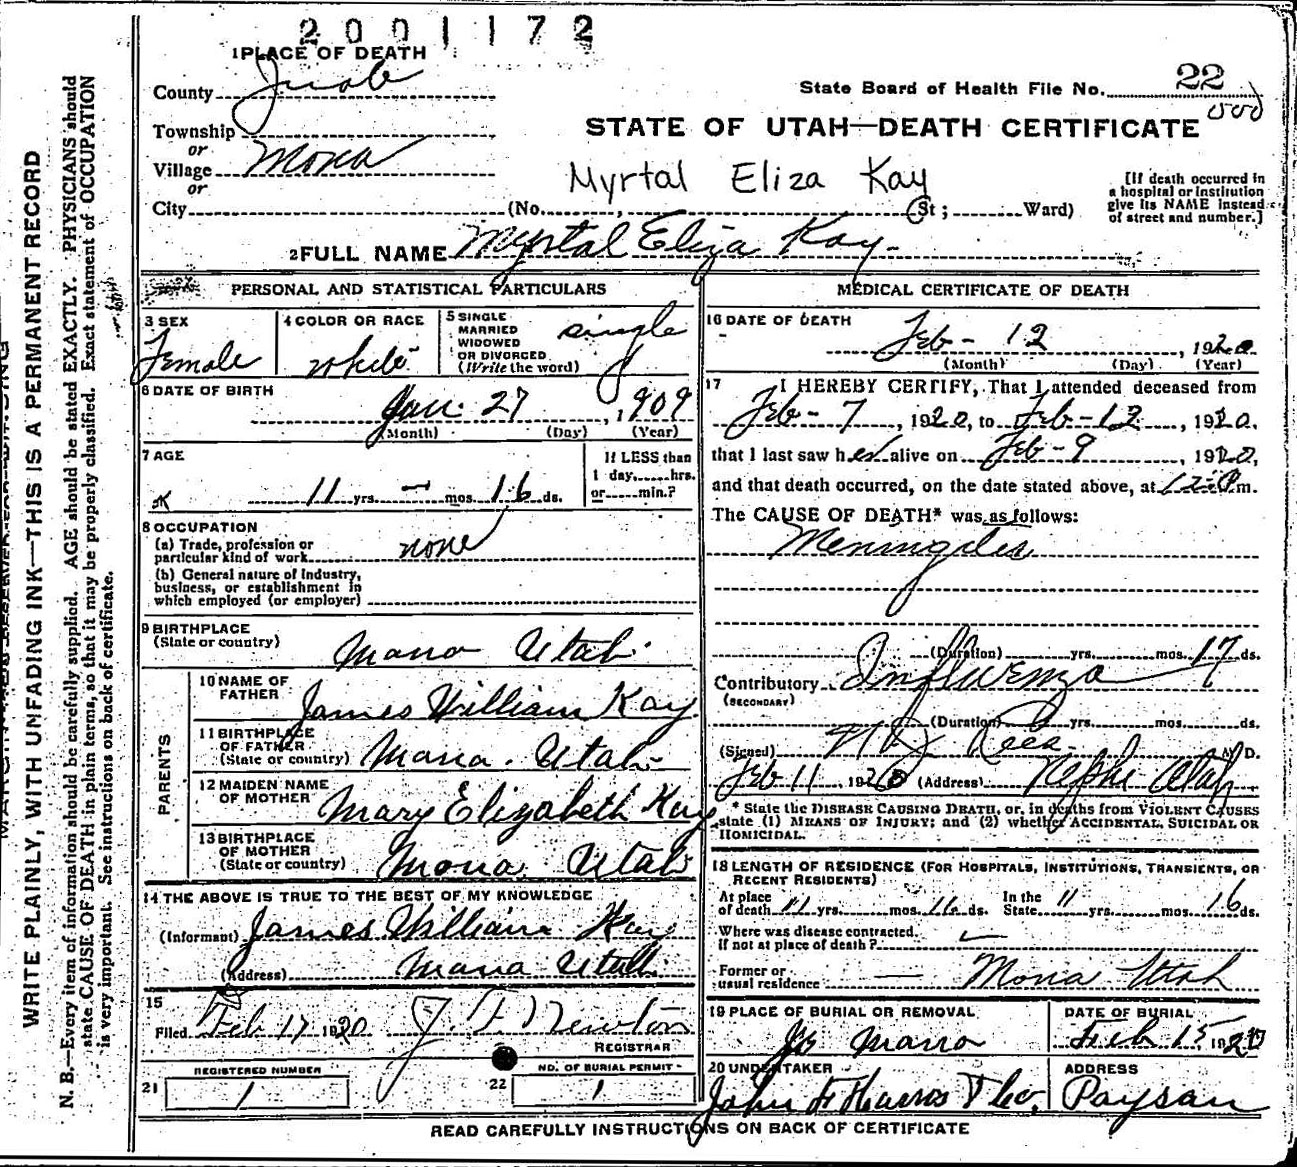 2001172
1 PLACE OF DEATH
County Juab
State Board of Health File No. 22
Township
or
Village Mona
or
City (No. , St; Ward)
STATE OF UTAH—DEATH CERTIFICATE
Myrtal Eliza Kay
[If death occurred in
a hospital or institution
give its NAME instead
of street and number.]
2 FULL NAME Myrtal Eliza Kay
PERSONAL AND STATISTICAL PARTICULARS
3 SEX
Female
4 COLOR OR RACE
white
5 SINGLE
MARRIED
WIDOWED
OR DIVORCED
(Write the word)
single
6 DATE OF BIRTH
Jan. 27, 1909
(Month) (Day) (Year)
7 AGE
11 yrs. — mos. 16 ds.
If LESS than
1 day, hrs.
or min.?
8 OCCUPATION
(a) Trade, profession or
particular kind of work none
(b) General nature of industry,
business, or establishment in
which employed (or employer)
9 BIRTHPLACE
(State or country)
Mona Utah
PARENTS
10 NAME OF
FATHER
James William Kay
11 BIRTHPLACE
OF FATHER
(State or country) Mona. Utah
12 MAIDEN NAME
OF MOTHER Mary Elizabeth Kay
13 BIRTHPLACE
OF MOTHER
(State or country) Mona. Utah
14 THE ABOVE IS TRUE TO THE BEST OF MY KNOWLEDGE
(Informant) James William Kay
(Address) Mona Utah
15
Filed Feb 17 1920 J. F. Newton
REGISTRAR
21 REGISTERED NUMBER
1
22 NO. OF BURIAL PERMIT
1
MEDICAL CERTIFICATE OF DEATH
16 DATE OF DEATH
Feb - 12, 1920
(Month) (Day) (Year)
17 I HEREBY CERTIFY, That I attended deceased from
Feb - 7, 1920, to Feb - 12, 1920,
that I last saw her alive on Feb - 9, 1920,
and that death occurred, on the date stated above, at m.
The CAUSE OF DEATH* was as follows:
Meningitis
(Duration) yrs. mos. 17 ds.
Contributory Influenza
(SECONDARY)
(Duration) yrs. mos. ds.
(Signed) M. D.
Feb 11 1920 (Address) Nephi Utah
* State the DISEASE CAUSING DEATH, or, in deaths from VIOLENT CAUSES
state (1) MEANS OF INJURY; and (2) whether ACCIDENTAL, SUICIDAL OR
HOMICIDAL.
18 LENGTH OF RESIDENCE (FOR HOSPITALS, INSTITUTIONS, TRANSIENTS, OR
RECENT RESIDENTS)
At place
of death 11 yrs. mos. 16 ds. In the
State 11 yrs. mos. 16 ds.
Where was disease contracted
if not at place of death?
Former or
usual residence — Mona Utah
19 PLACE OF BURIAL OR REMOVAL
Mona
DATE OF BURIAL
Feb 15 1920
20 UNDERTAKER
ADDRESS
Paysan
READ CAREFULLY INSTRUCTIONS ON BACK OF CERTIFICATE
WRITE PLAINLY, WITH UNFADING INK—THIS IS A PERMANENT RECORD
N. B.—Every item of information should be carefully supplied. AGE should be stated EXACTLY. PHYSICIANS should
state CAUSE OF DEATH in plain terms, so that it may be properly classified. Exact statement of OCCUPATION
is very important. See instructions on back of certificate.